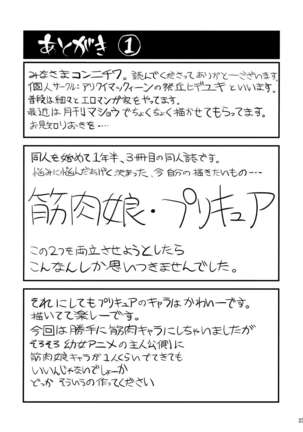 あとがき ①
みなさまコンニチワ。読んでくださってありがと一ございます。
個人サークル:アリクイマッフィーンの然立ヒデユキといいます。
普段は細々とエロマンガ家をやってます。
最近は月刊マショウでちょくちょく描かせてもらってます。
お見知りおきを…
同人を始めて1年半、3冊目の同人誌です。
悩みに悩んだあげく決まった、今自分の描きたいもの…
筋肉娘・プリキュア
この2つを両立させようとしたら
こんなんしか思いつきませんでした。
それにしてもプリキュアのキャラはかわいーです。
描いてて楽しーです。
今回は勝手に筋肉キャラにしちゃいましたが
そろそろ幼女アニメの主人公側に
筋肉娘キャラが1人くらいでてきても
いいんじゃないでしょーか
どっか そういうの作ってください